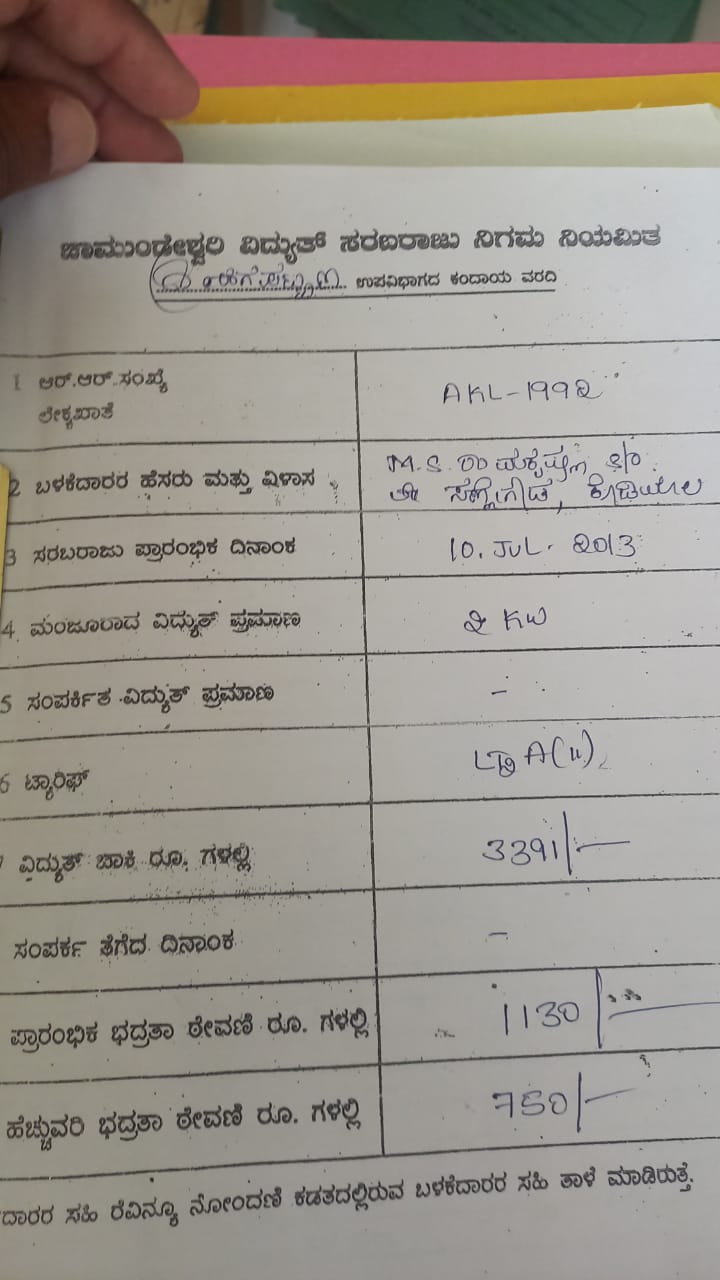 ಚಾಮುಂಡೇಶ್ವರಿ ವಿದ್ಯುತ್ ಸರಬರಾಜು ನಿಗಮ ನಿಯಮಿತ
ಉಪವಿಭಾಗದ ಕಂದಾಯ ವರದಿ
1 ಆರ್.ಆರ್.ಸಂಖ್ಯೆ
ಲೇಕ್ಕಖಾತೆ
AKL-1992
2 ಬಳಕೆದಾರರ ಹೆಸರು ಮತ್ತು ವಿಳಾಸ
M.S. ರಾಮಕೃಷ್ಣ S/o
3 ಸರಬರಾಜು ಪ್ರಾರಂಭಿಕ ದಿನಾಂಕ
10. JUL. 2013
4 ಮಂಜೂರಾದ ವಿದ್ಯುತ್ ಪ್ರಮಾಣ
2 KW
5 ಸಂಪರ್ಕಿತ ವಿದ್ಯುತ್ ಪ್ರಮಾಣ
-
6 ಟ್ಯಾರಿಫ್
A(ii)
ವಿದ್ಯುತ್ ಬಾಕಿ ರೂ. ಗಳಲ್ಲಿ
3391/-
ಸಂಪರ್ಕ ತೆಗೆದ ದಿನಾಂಕ
-
ಪ್ರಾರಂಭಿಕ ಭದ್ರತಾ ಠೇವಣಿ ರೂ. ಗಳಲ್ಲಿ
1130/-
ಹೆಚ್ಚುವರಿ ಭದ್ರತಾ ಠೇವಣಿ ರೂ. ಗಳಲ್ಲಿ
750/-
ದಾರರ ಸಹಿ ರೆವಿನ್ಯೂ ನೋಂದಣಿ ಕಡತದಲ್ಲಿರುವ ಬಳಕೆದಾರರ ಸಹಿ ತಾಳೆ ಮಾಡಿರುತ್ತೆ.